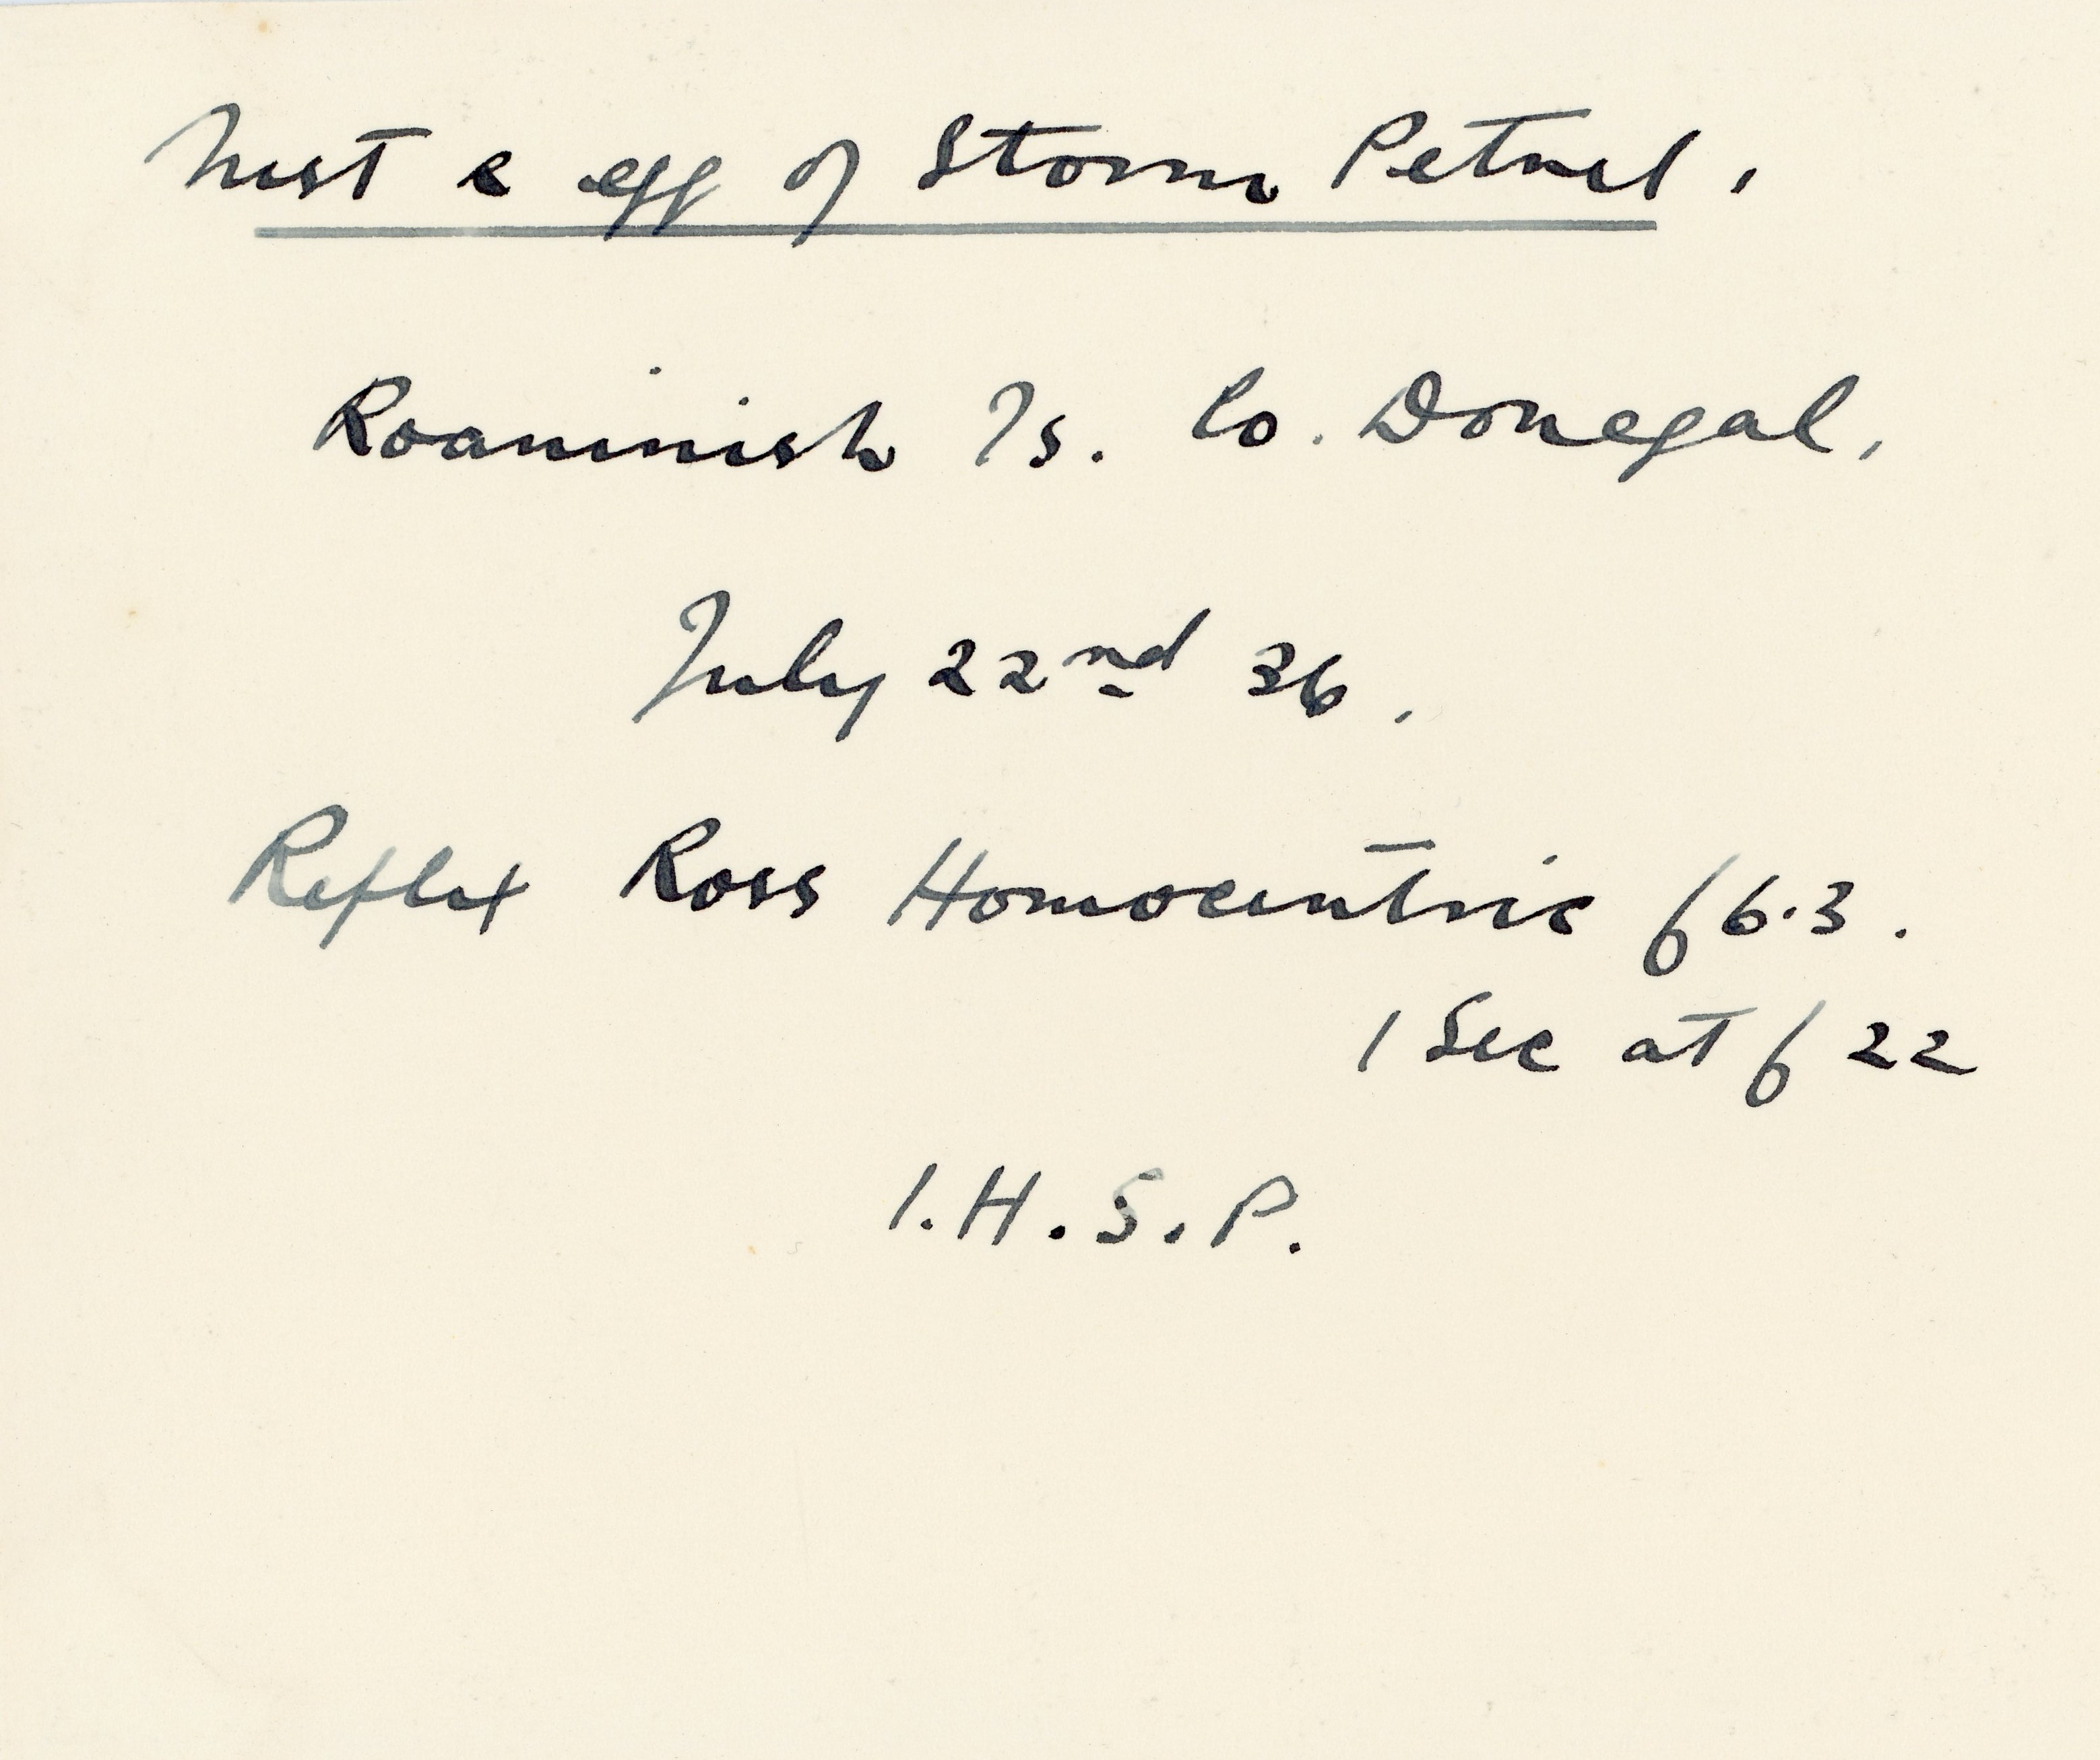 Nest & egg of Storm Petrel.
Roaninish Is. Co. Donegal.
July 22nd 36.
Reflex Ross Homocentric f6.3.
1 Sec at f 22
I.H.S.P.